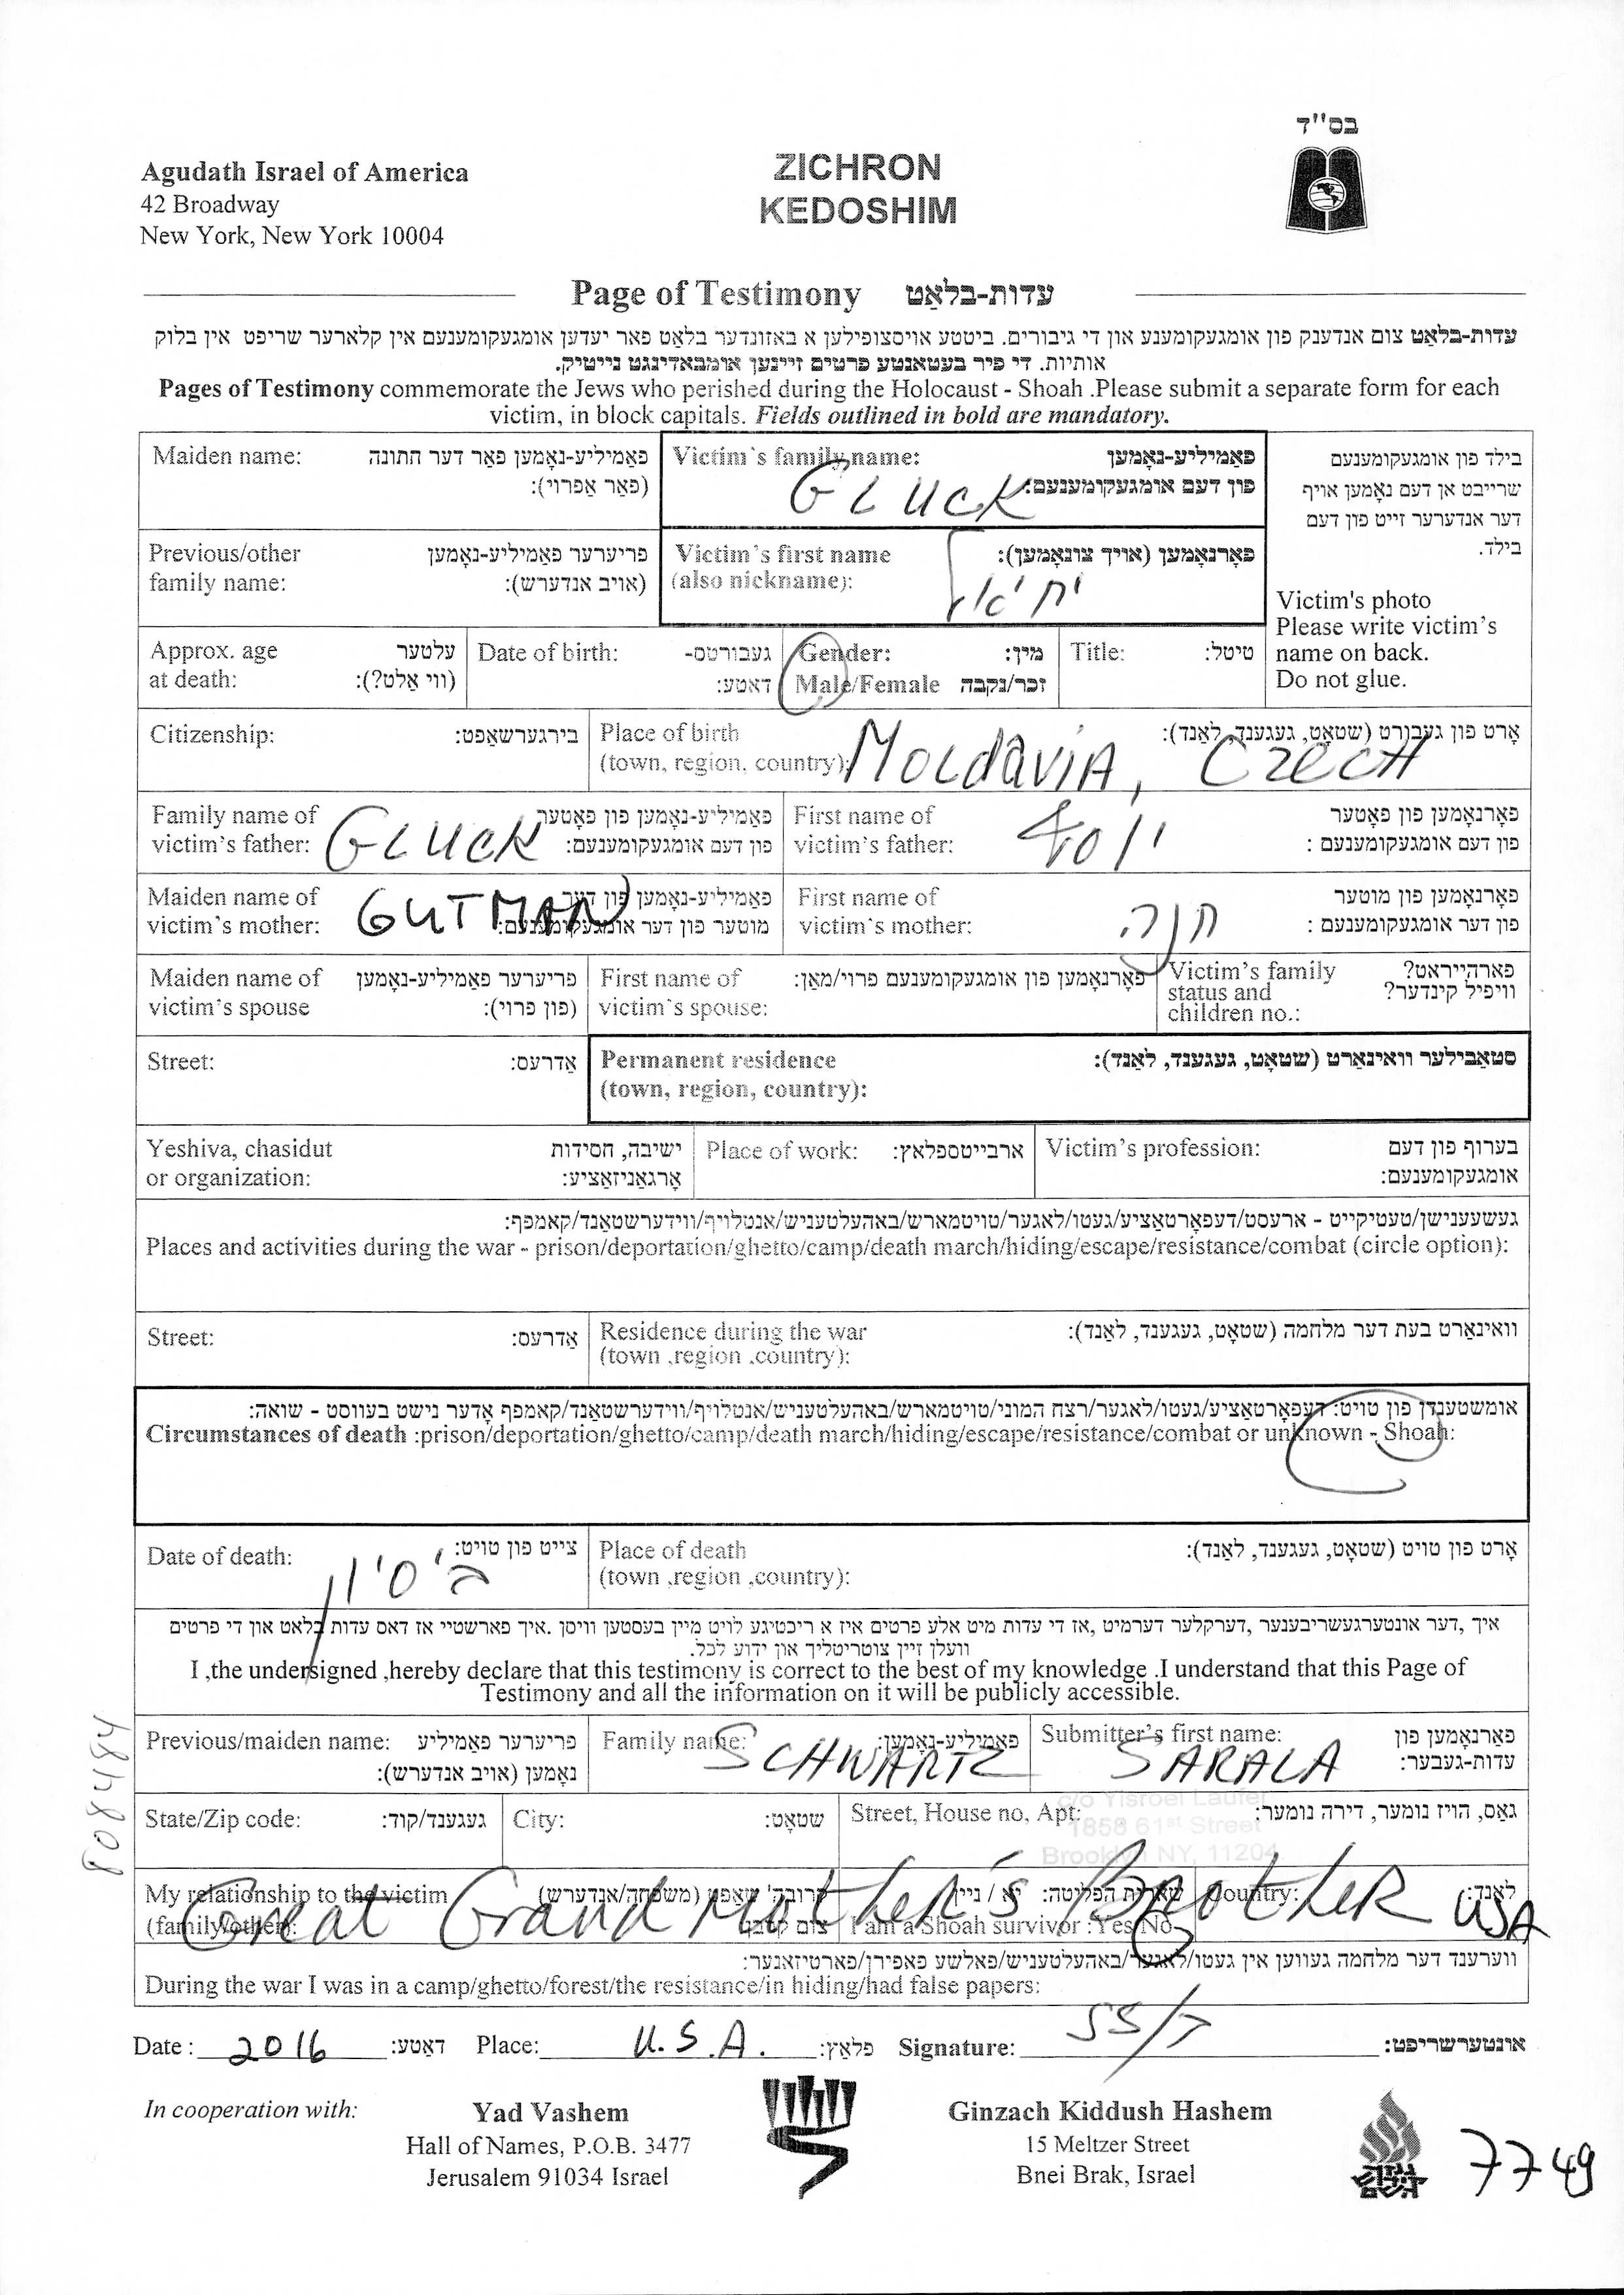 בס"ד
Agudath Israel of America
42 Broadway
New York, New York 10004
ZICHRON
KEDOSHIM
Page of Testimony עדות-בלאַט
עדות-בלאַט צום אנדענק פון אומגעקומענע און די גיבורים. ביטטע אויסצופילען א באזונדער בלאַט פאר יעדען אומגעקומענעם אין קלארער שריפט אין בלוק
אותיות. די פיר בעטאנטע פרטים זיינען אומבאדינגט נייטיק.
Pages of Testimony commemorate the Jews who perished during the Holocaust - Shoah .Please submit a separate form for each
victim, in block capitals. Fields outlined in bold are mandatory.
Maiden name: פאַמיליע-נאָמען פאר דער חתונה
(פאר אַפרוי):
Victim's family name: פאַמיליע-נאָמען
פון דעם אומגעקומענעם:
GLUCK
בילד פון אומגעקומענעם
שרייבט אן דעם נאָמען אויף
דער אנדערער זייט פון דעם
בילד.
Victim's photo
Please write victim's
name on back.
Do not glue.
Previous/other פריערער פאַמיליע-נאָמען
family name: (אויב אנדערש):
Victim's first name פאָרנאָמען (אויך צונאָמען):
(also nickname):
Approx. age עלטער
at death: (ווי אַלט?):
Date of birth: געבורטס-
דאַטע:
Gender: מין:
Male/Female זכר/נקבה
Title: טיטל:
Citizenship: בירגערשאַפט:
Place of birth אָרט פון געבורט (שטאָט, געגענד, לאַנד):
(town, region, country):
MOLdaviA, CZECH
Family name of פאַמיליע-נאָמען פון פאָטער
victim's father: פון דעם אומגעקומענעם:
GLUCK
First name of פאָרנאָמען פון פאָטער
victim's father: פון דעם אומגעקומענעם :
יוסף
Maiden name of פאַמיליע-נאָמען פון דער
victim's mother: מוטער פון דער אומגעקומענעם:
GUTMAN
First name of פאָרנאָמען פון מוטער
victim's mother: פון דער אומגעקומענעם :
חנה
Maiden name of פריערער פאַמיליע-נאָמען
victim's spouse (פון פרוי):
First name of פאָרנאָמען פון אומגעקומענעם פרוי/מאַן:
victim's spouse:
Victim's family פארהייראט?
status and וויפיל קינדער?
children no.:
Street: אַדרעס:
Permanent residence סטאַבילער וואוינאָרט (שטאָט, געגענד, לאַנד):
(town, region, country):
Yeshiva, chasidut ישיבה, חסידות
or organization: אָרגאַניזאַציע:
Place of work: ארבייטספלאץ:
Victim's profession: בערוף פון דעם
אומגעקומענעם:
געשעענישן/טעטיקייט - ארעסט/דעפאָרטאַציע/געטו/לאגער/טויטמארש/באהעלטעניש/אנטלויף/ווידערשטאַנד/קאמפף:
Places and activities during the war - prison/deportation/ghetto/camp/death march/hiding/escape/resistance/combat (circle option):
Street: אַדרעס:
Residence during the war וואוינאָרט בעת דער מלחמה (שטאָט, געגענד, לאַנד):
(town ,region ,country):
אומשטענדן פון טויט: דעפאָרטאַציע/געטו/לאגער/רצח המוני/טויטמארש/באהעלטעניש/אנטלויף/ווידערשטאַנד/קאמפף אָדער נישט בעוווסט - שואה:
Circumstances of death :prison/deportation/ghetto/camp/death march/hiding/escape/resistance/combat or unknown - Shoah:
Date of death: צייט פון טויט:
ב' סיון
Place of death אָרט פון טויט (שטאָט, געגענד, לאַנד):
(town ,region ,country):
איך ,דער אונטערגעשריבענער ,דערקלער דערמיט ,אז די עדות מיט אלע פרטים איז א ריכטיגע לויט מיין בעסטען וויסן .איך פארשטיי אז דאס עדות בלאט און די פרטים
וועלן זיין צוטריטליך און ידוע לכל.
I ,the undersigned ,hereby declare that this testimony is correct to the best of my knowledge .I understand that this Page of
Testimony and all the information on it will be publicly accessible.
Previous/maiden name: פריערער פאַמיליע
נאָמען (אויב אנדערש):
Family name: פאַמיליע-נאָמען:
SCHWARTZ
Submitter's first name: פאָרנאָמען פון
עדות-געבער:
SARALA
State/Zip code: געגענד/קוד:
City: שטאָט:
Street, House no, Apt: גאַס, הויז נומער, דירה נומער:
c/o Yisroel Laufer
1858 61st Street
Brooklyn NY, 11204
My relationship to the victim
(family/other):
I am a Shoah survivor :Yes/No
Country: לאַנד:
Great Grand Mother's Brother USA
ווערענד דער מלחמה געווען אין געטו/לאגער/באהעלטעניש/פאלשע פאפירן/פארטיזאנער:
During the war I was in a camp/ghetto/forest/the resistance/in hiding/had false papers:
Date : 2016 דאַטע: Place: U.S.A. פלאַץ: Signature: אונטערשריפט:
In cooperation with:
Yad Vashem
Hall of Names, P.O.B. 3477
Jerusalem 91034 Israel
Ginzach Kiddush Hashem
15 Meltzer Street
Bnei Brak, Israel
7749
8084184